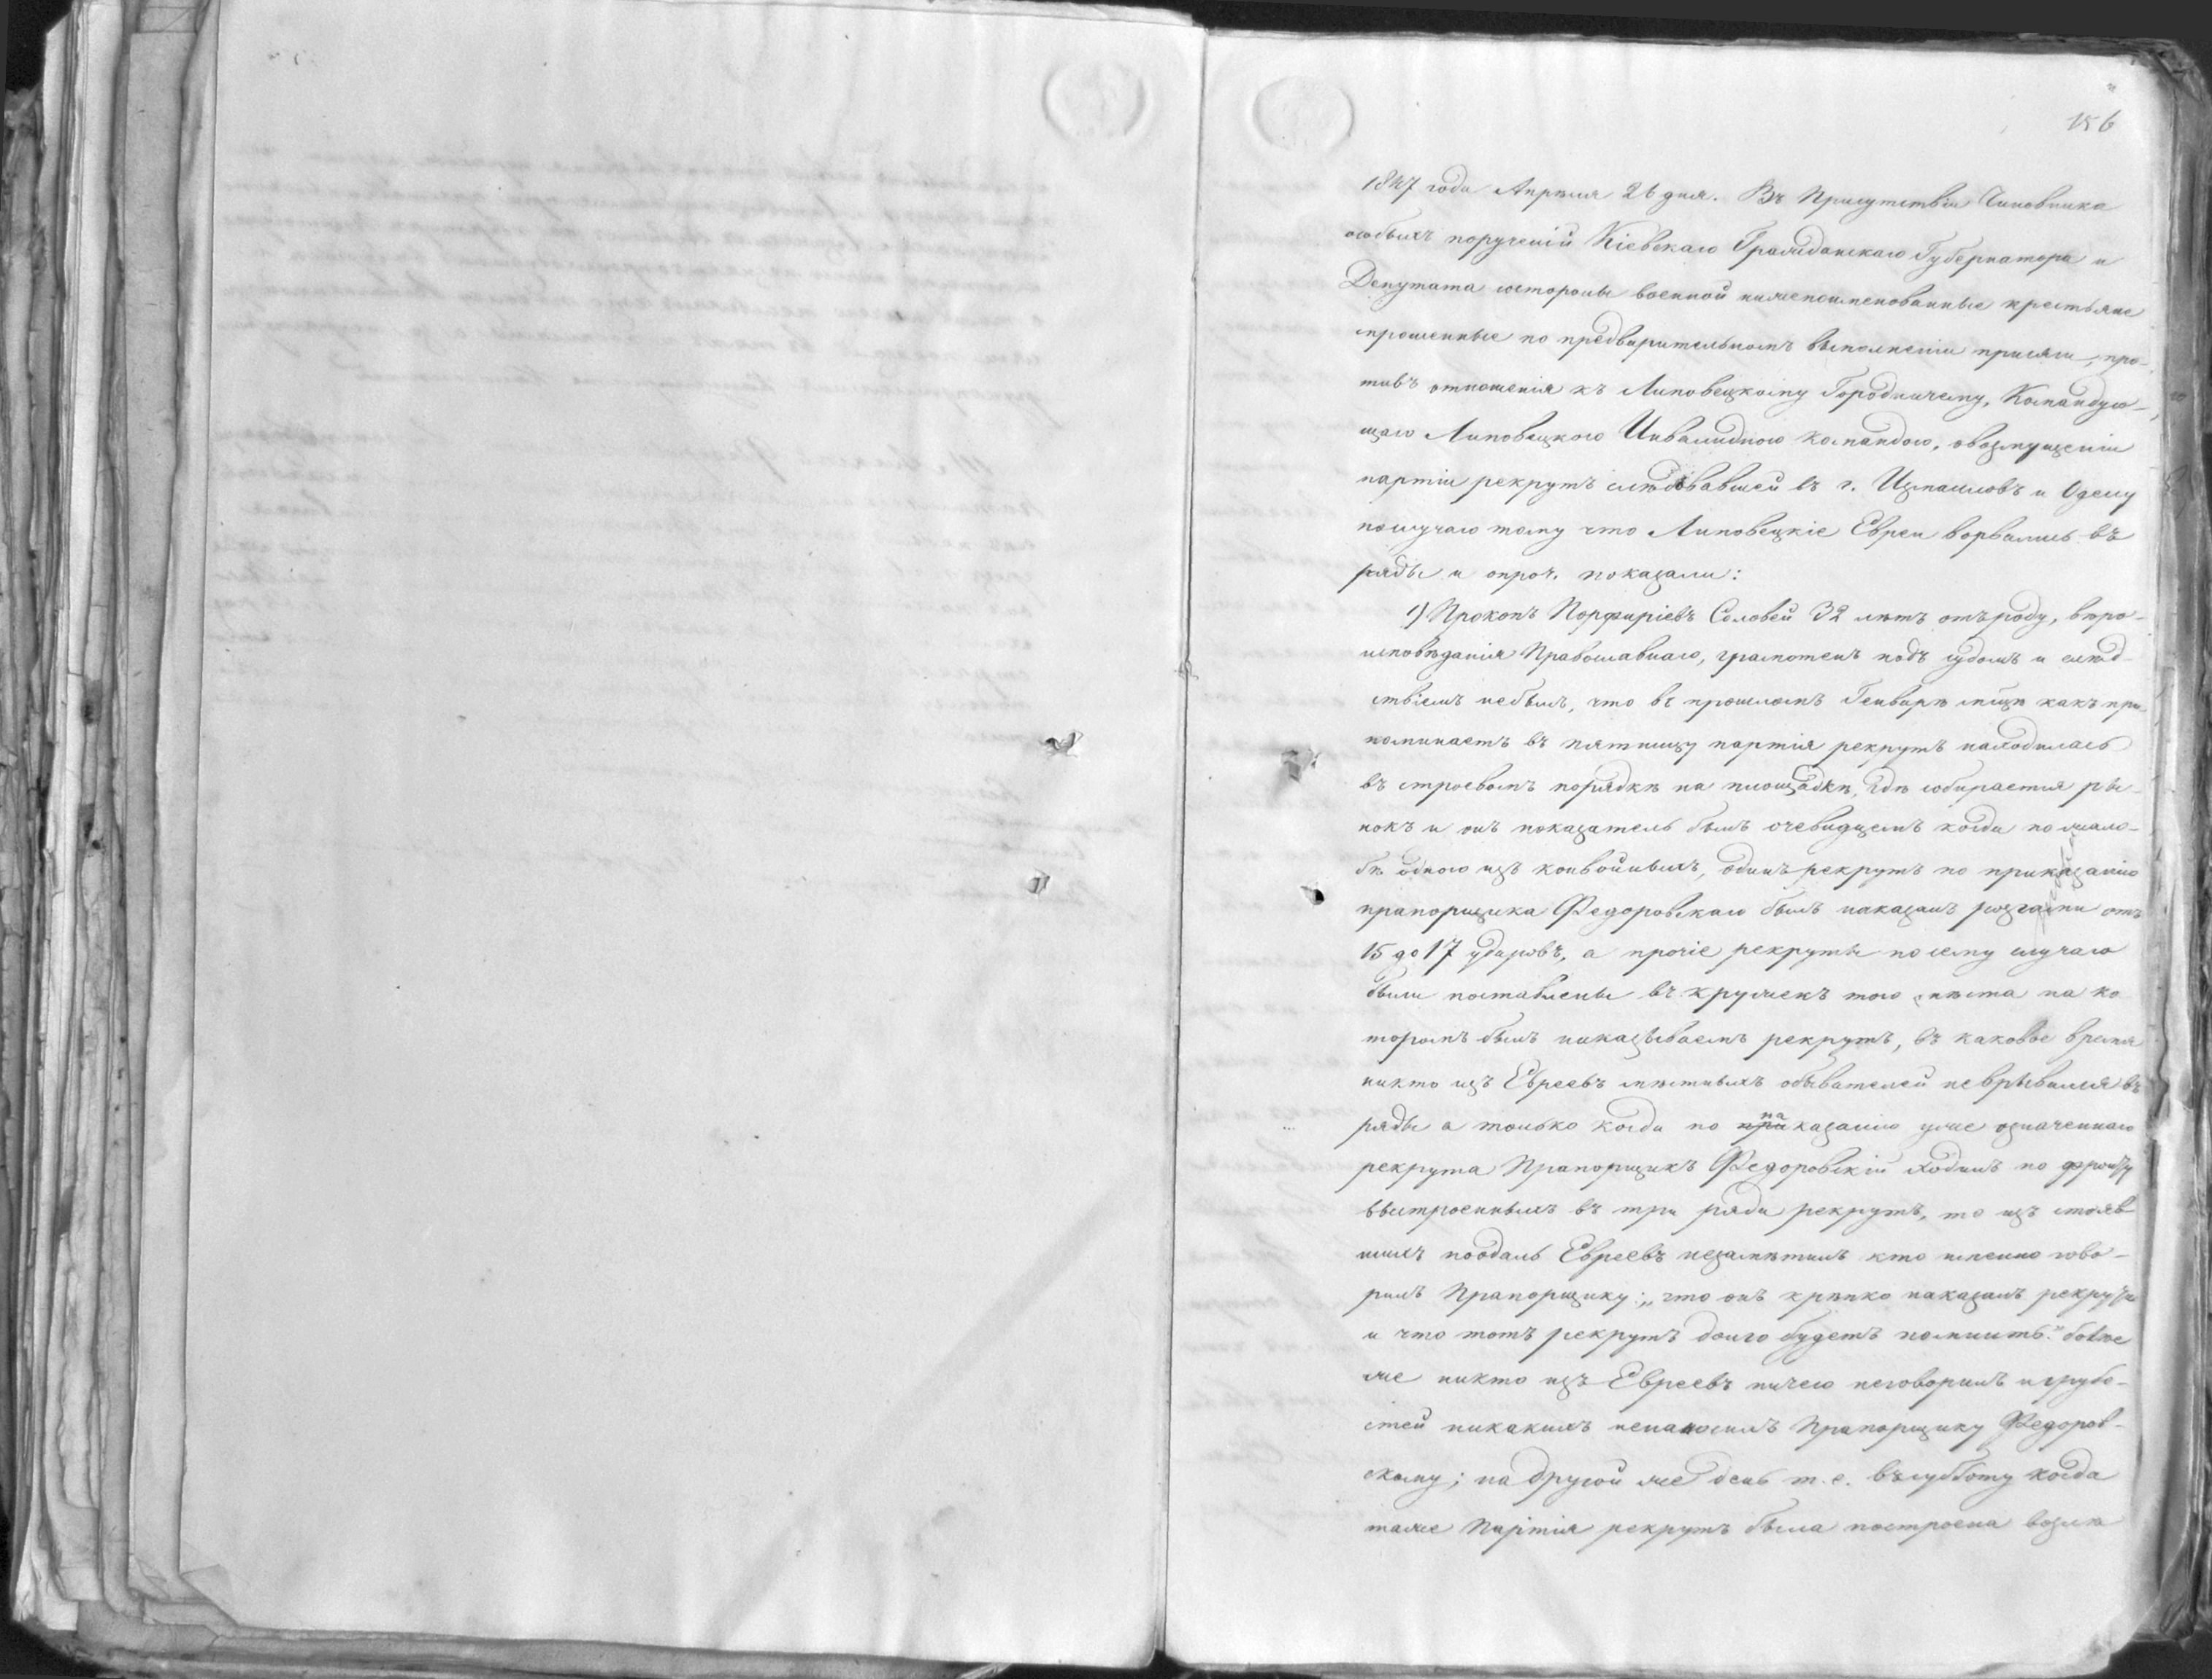 156
1847 года Апрѣля 26 дня. Въ Присутствіи Чиновника
особыхъ порученій Кіевскаго Гражданскаго Губернатора и
Депутата состороны военной нижепоименованные крестьяне
спрошенные по предварительномъ выполненіи присяги, про-
тивъ отношенія къ Липовецкому Городничему, Командую-
щаго Липовецкою Инвалидною командою, овозмущеніи
партіи рекрутъ слѣдовавшей въ г. Измаиловъ и Одессу
послучаю тому что Липовецкіе Евреи ворвались въ
ряды и опроч. показали:
1) Прокопъ Порфиріевъ Соловей 32 лѣтъ отъ роду, вѣро-
исповѣданія Православнаго, грамотенъ подъ судомъ и слѣд-
ствіемъ небылъ, что въ прошломъ Генварѣ мѣсцѣ какъ при
поминаетъ въ пятницу партія рекрутъ находилась
въ строевомъ порядкѣ на площадкѣ, гдѣ собирается ры-
нокъ и онъ показатель былъ очевидцемъ когда по жало-
бѣ одного изъ конвойныхъ, одинъ рекрутъ по приказанію
прапорщика Федоровскаго былъ наказанъ розгами отъ
15 до 17 ударовъ, а прочіе рекруты посему случаю
были поставлены въ кружекъ того мѣста на ко
торомъ былъ наказываемъ рекрутъ, въ каковое время
никто изъ Евреевъ мѣстныхъ обывателей неврывался въ
ряды а только когда по на казанію уже означеннаго
рекрута Прапорщикъ Федоровскій ходилъ по фронту
выстроенныхъ въ три ряда рекрутъ, то изъ стояв
шихъ поодаль Евреевъ незамѣтилъ кто именно гово-
рилъ Прапорщику: „что онъ крѣпко наказалъ рекрута
и что тотъ рекрутъ долго будетъ помнить." болѣе
же никто изъ Евреевъ ничего неговорилъ игрубо-
стей никакихъ ненаносилъ Прапорщику Федоров-
скому; на другой же день т.е. въсубботу когда
таже Партія рекрутъ была построена возлѣ